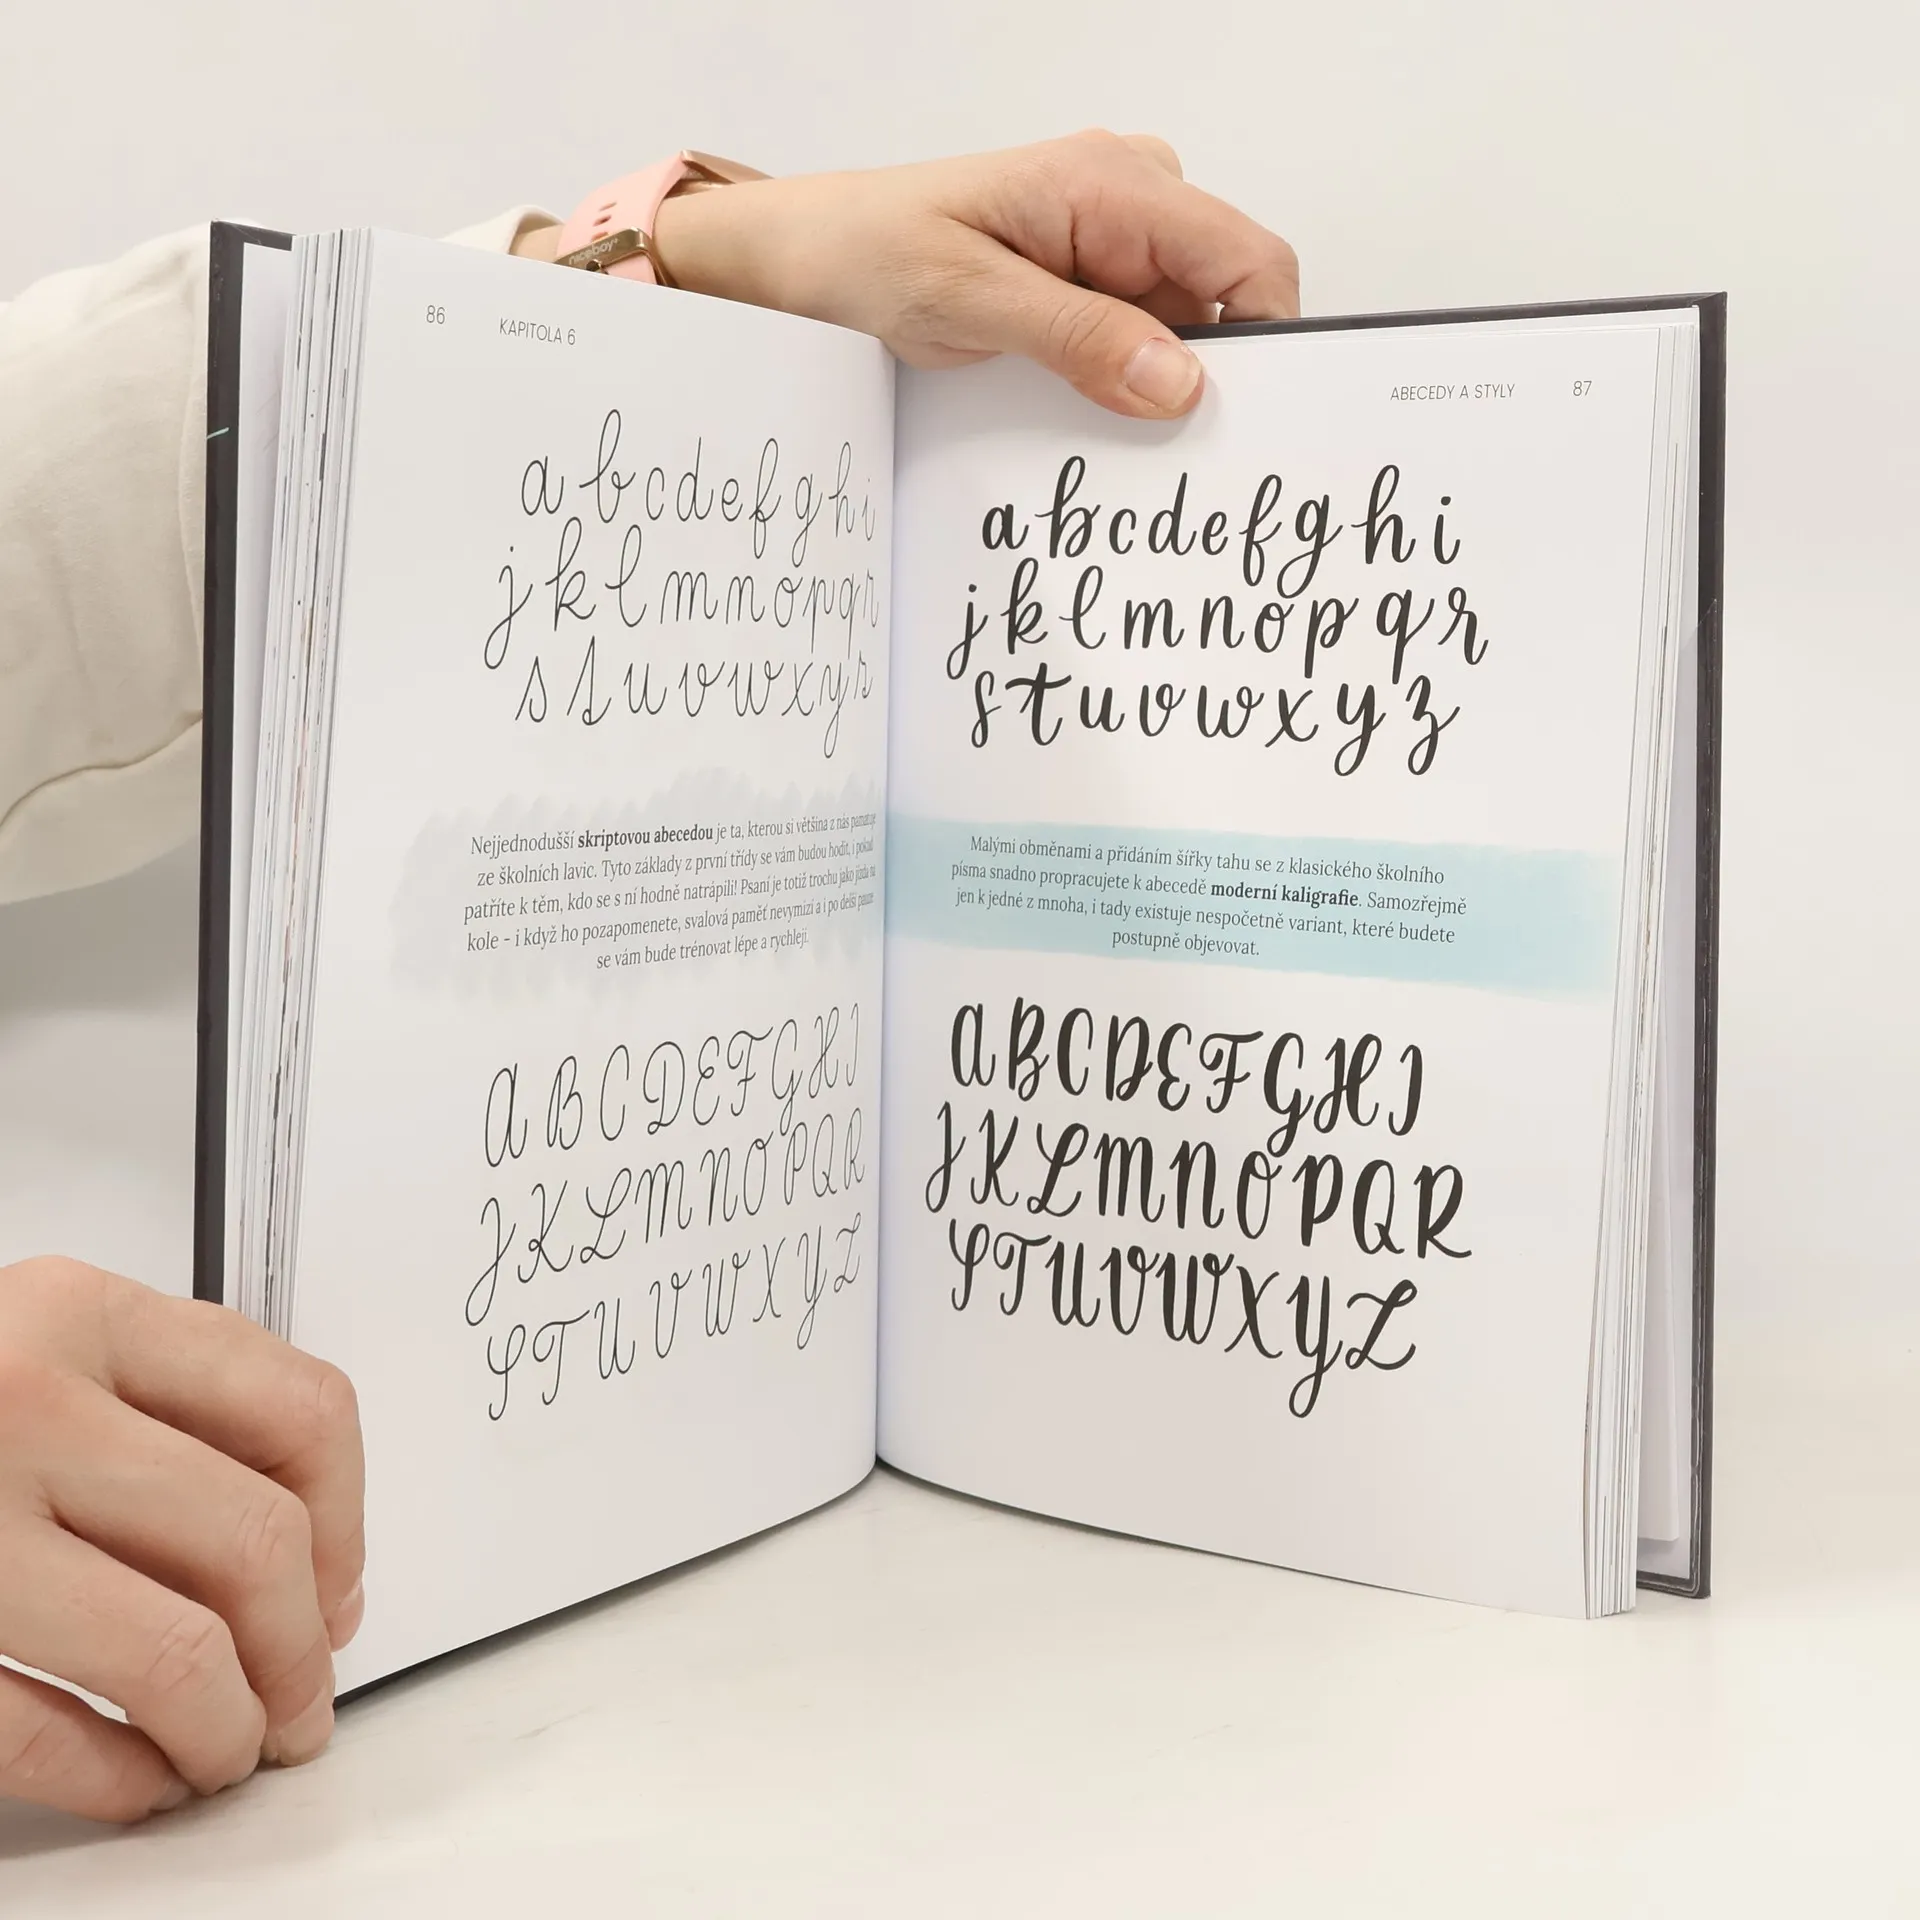 niceboy®
86 KAPITOLA 6
a b c d e f g h i
j k l m n o p q r
s t u v w x y z
Nejjednodušší skriptovou abecedou je ta, kterou si většina z nás pamatuje
ze školních lavic. Tyto základy z první třídy se vám budou hodit, i pokud
patříte k těm, kdo se s ní hodně natrápili! Psaní je totiž trochu jako jízda na
kole – i když ho pozapomenete, svalová paměť nevymizí a i po delší pauze
se vám bude trénovat lépe a rychleji.
A B C D E F G H I
J K L M N O P Q R
S T U V W X Y Z
ABECEDY A STYLY 87
a b c d e f g h i
j k l m n o p q r
s t u v w x y z
Malými obměnami a přidáním šířky tahu se z klasického školního
písma snadno propracujete k abecedě moderní kaligrafie. Samozřejmě
jen k jedné z mnoha, i tady existuje nespočetně variant, které budete
postupně objevovat.
A B C D E F G H I
J K L M N O P Q R
S T U V W X Y Z